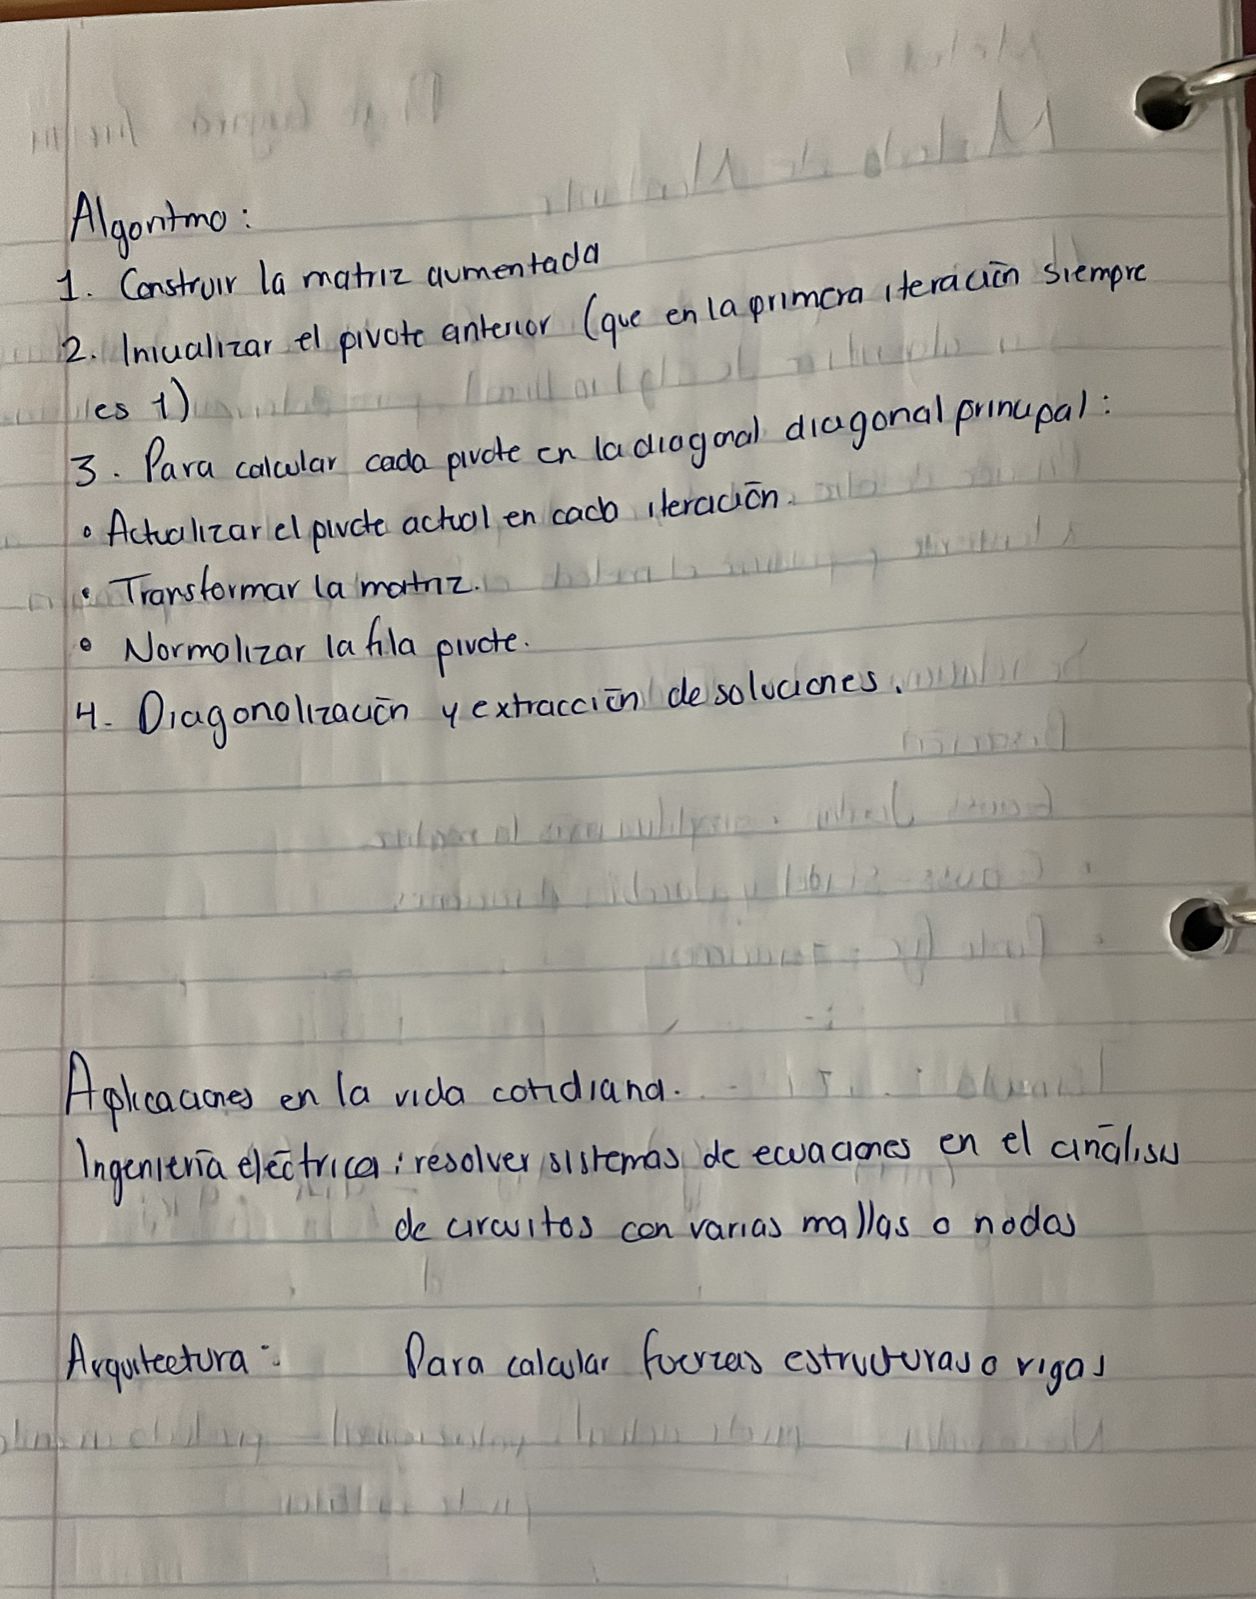 Algoritmo:
1. Construir la matriz aumentada
2. Inicializar el pivote anterior (que en la primera iteración siempre
es 1)
3. Para calcular cada pivote en la diagonal diagonal principal:
• Actualizar el pivote actual en cada iteración.
• Transformar la matriz.
• Normalizar la fila pivote.
4. Diagonalización y extracción de soluciones.
Aplicaciones en la vida cotidiana.
Ingeniería eléctrica: resolver sistemas de ecuaciones en el análisis
de circuitos con varias mallas o nodos
Arquitectura: Para calcular fuerzas estructuras o vigas